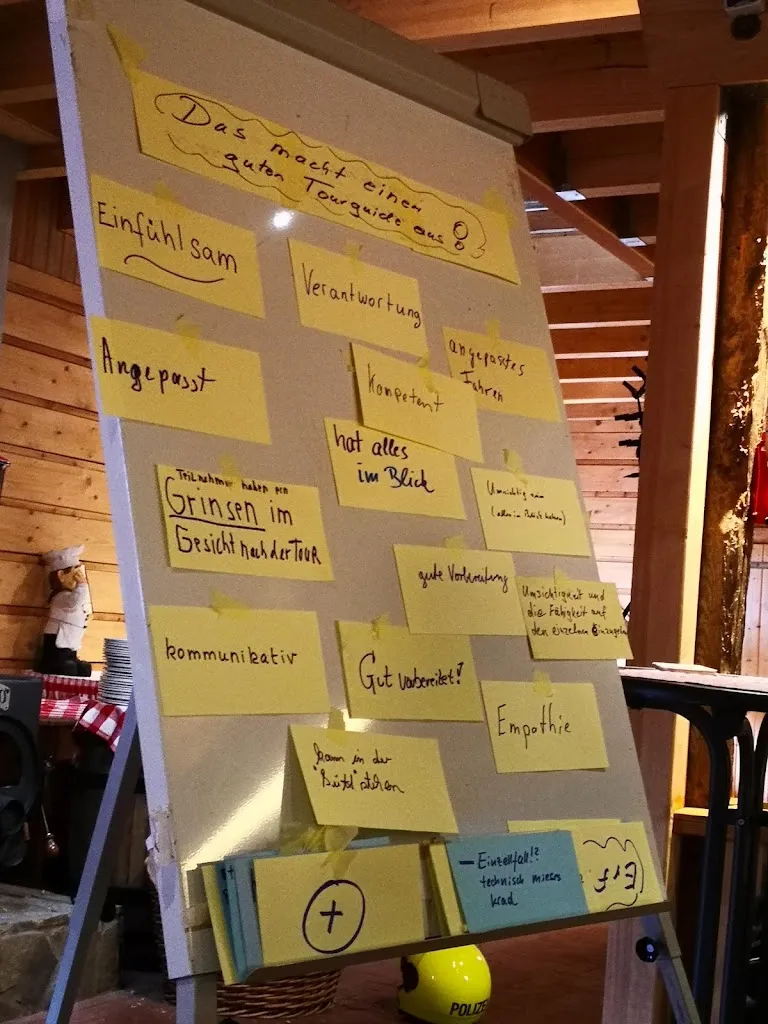 Das macht einen
guten Tourguide aus!
Einfühlsam
Verantwortung
angepasstes
Fahren
Angepasst
Kompetent
hat alles
im Blick
Teilnehmer haben ein
Grinsen im
Gesicht nach der TOUR
Umsichtig sein
(alles im Blick haben)
gute Vorbereitung
Umsichtigkeit und
die Fähigkeit auf
den einzelnen einzugehen
kommunikativ
Gut vorbereitet!
Empathie
kann in der
"Bütt" stehen
+
- Einzelfall!?
technisch mieses
Krad
POLIZE